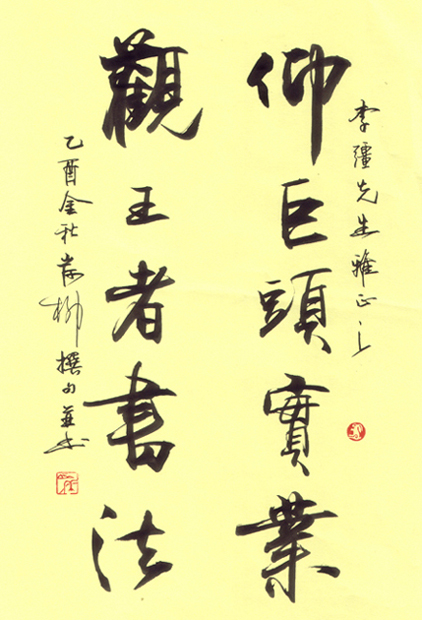 李疆先生雅正之
仰巨頭實業
觀王者書法
乙酉金秋柳撰句并书